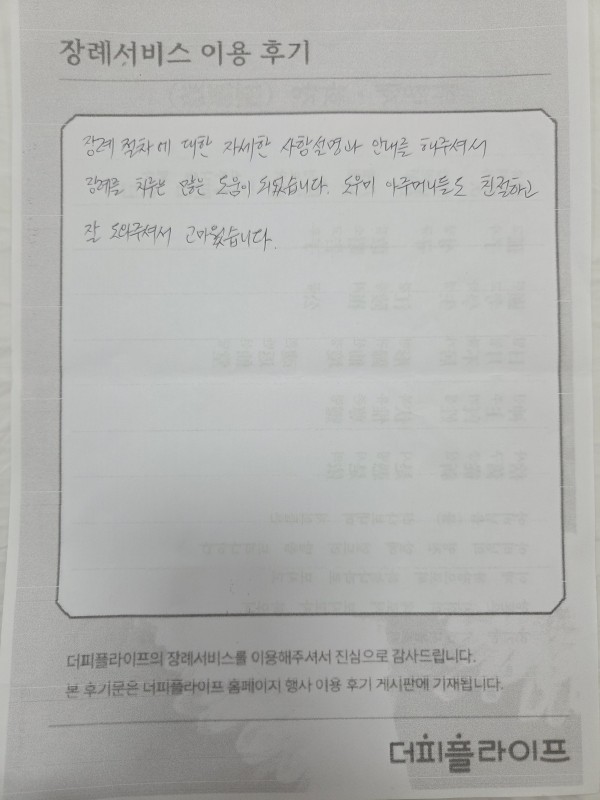 장례서비스 이용 후기
장례 절차에 대한 자세한 사항설명과 안내를 해주셔서
장례를 치루는 많은 도움이 되었습니다. 도우미 아주머니들도 친절하고
잘 도와주셔서 고마웠습니다.
더피플라이프의 장례서비스를 이용해주셔서 진심으로 감사드립니다.
본 후기문은 더피플라이프 홈페이지 행사 이용 후기 게시판에 기재됩니다.
더피플라이프